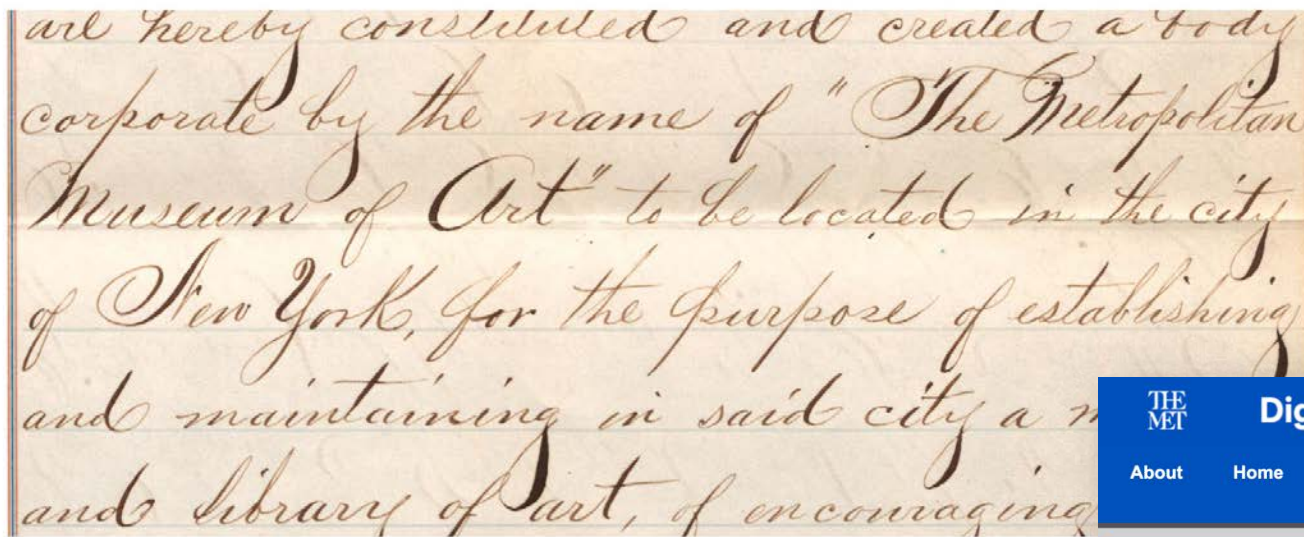 are hereby constituted and created a body
corporate by the name of "The Metropolitan
Museum of Art" to be located in the city
of New York, for the purpose of establishing
and maintaining in said city a
and library of art, of encouraging
THE
MET
Dig
About Home